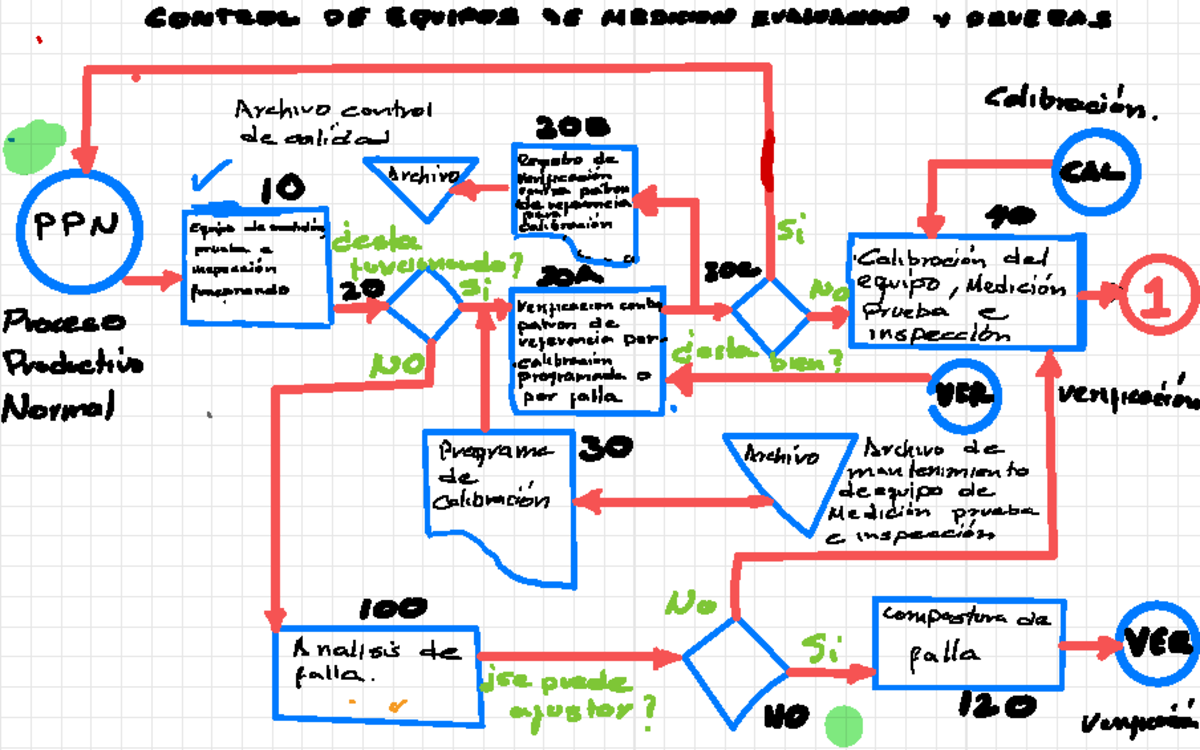 CONTROL DE EQUIPOS DE MEDICION EVALUACION Y PRUEBAS
Archivo control
de calidad
Calibración.
20B
CAL
Archivo
Registro de
Verificación
contra patron
de referencia
para
Calibración
10
PPN
Equipo de medición,
prueba e
inspección
funcionando
¿esta
funcionando?
20
Si
NO
30A
Verificacion contra
patron de
referencia por
calibración
programada o
por falla
Si
No
¿esta bien?
90
Calibración del
equipo, Medición
Prueba e
inspección
1
Proceso
Productivo
Normal
VER
verificación
Programa
de
Calibración
30
Archivo
Archivo de
mantenimiento
de equipo de
Medición prueba
e inspección
100
Analisis de
falla.
¿se puede
ajustar?
No
Si
110
compostura de
falla
120
VER
Verificación